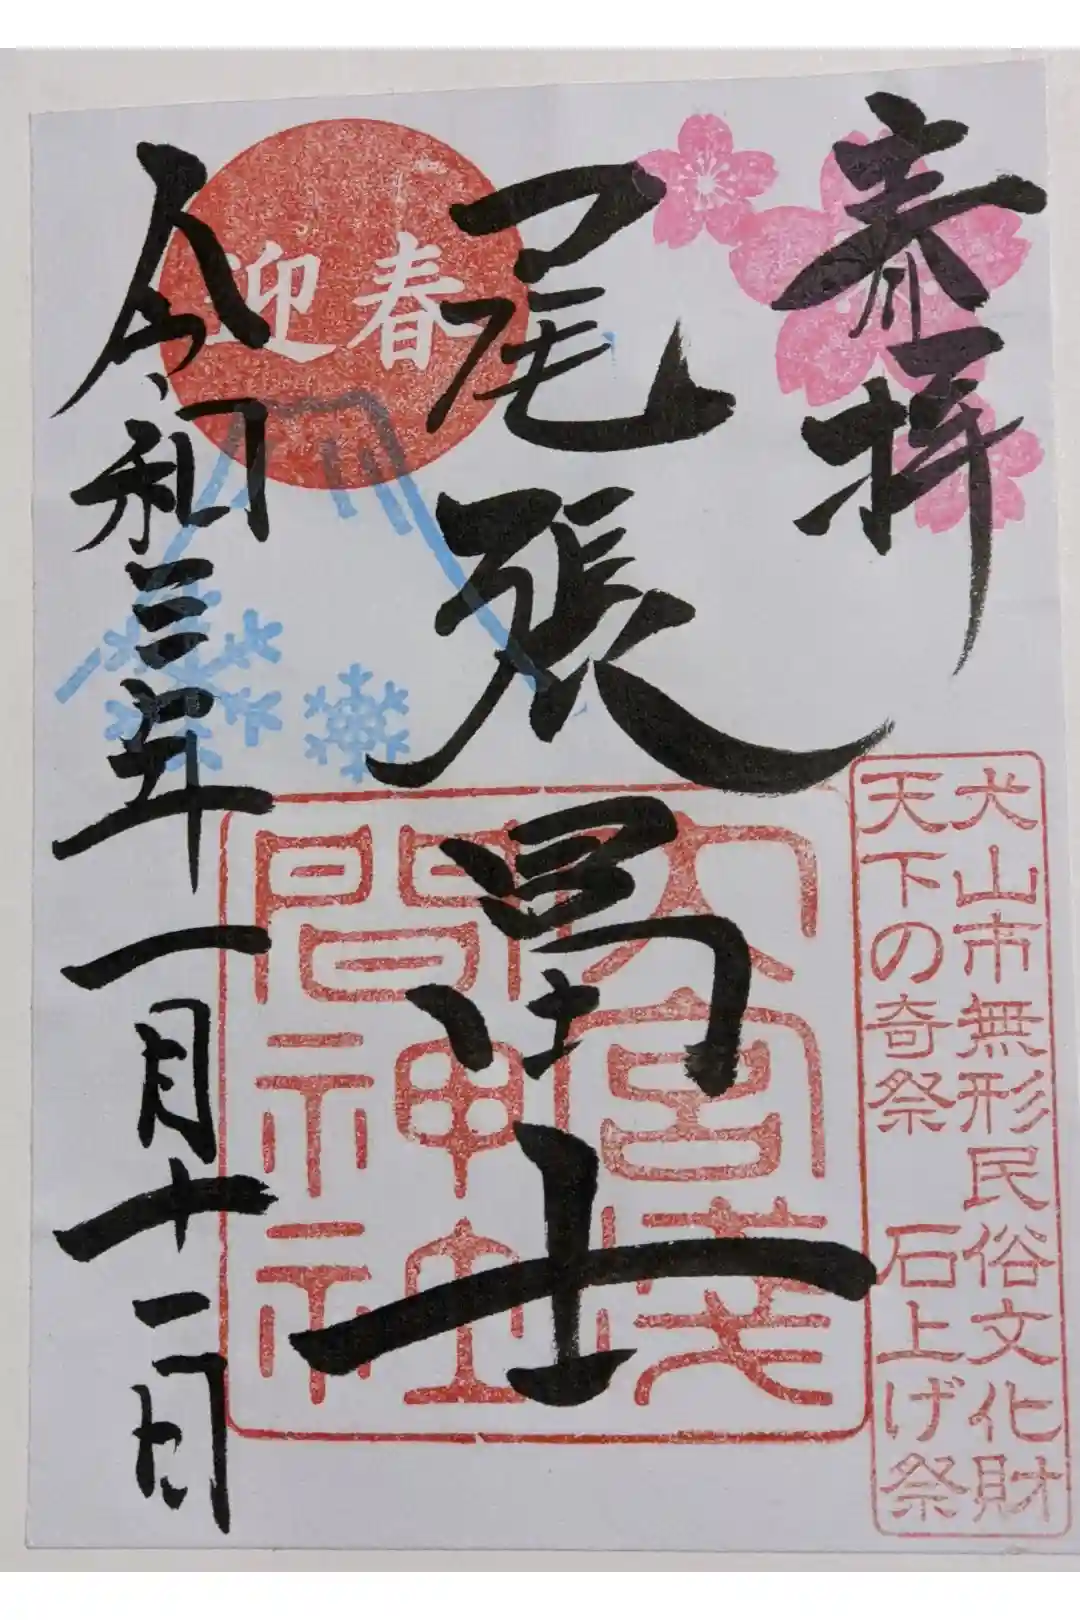 奉拝
犬山市無形民俗文化財
天下の奇祭 石上げ祭
尾張冨士
大宮浅
間神社
迎春
令和三年一月十二日